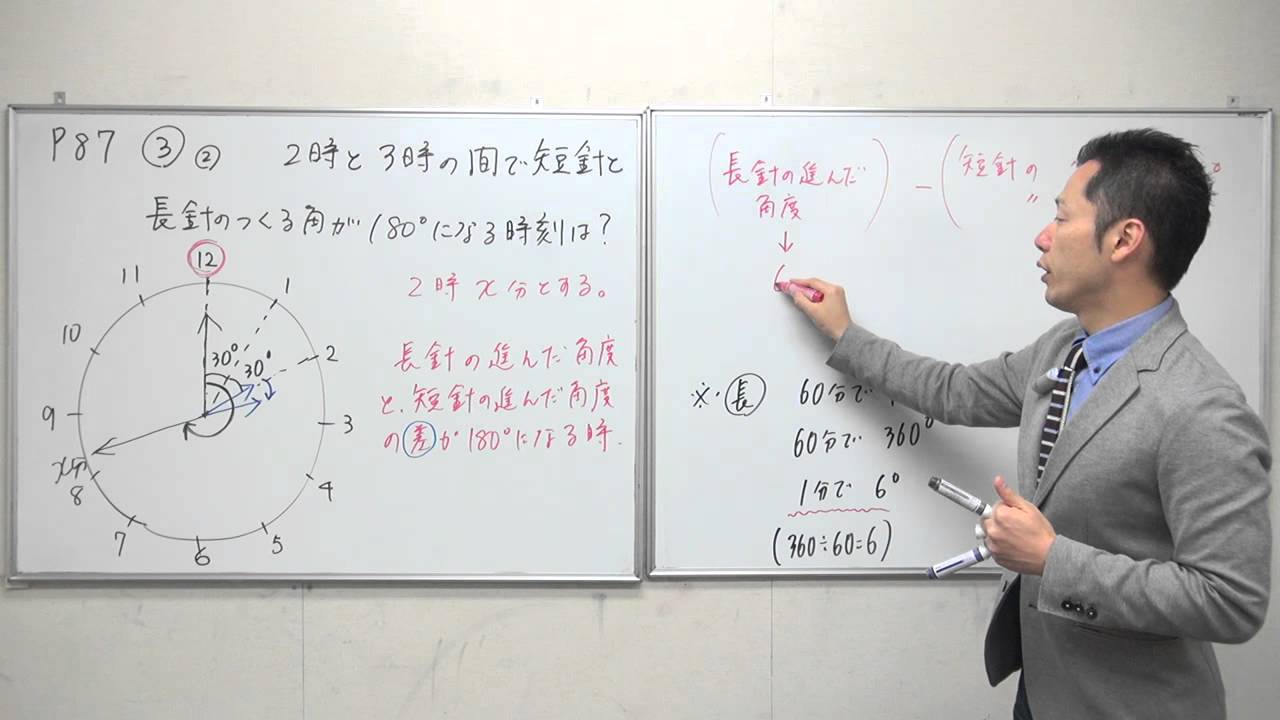 P87 ③ ② 2時と3時の間で短針と
長針のつくる角が180°になる時刻は?
12
11
1
10
2
9
3
8
4
7
5
6
30°
30°
x分
2時x分とする。
長針の進んだ角度
と、短針の進んだ角度
の差が180°になる時.
(長針の進んだ
角度) − (短針の
〃
°
↓
6
※・長 60分で
60分で 360°
1分で 6°
(360÷60=6)